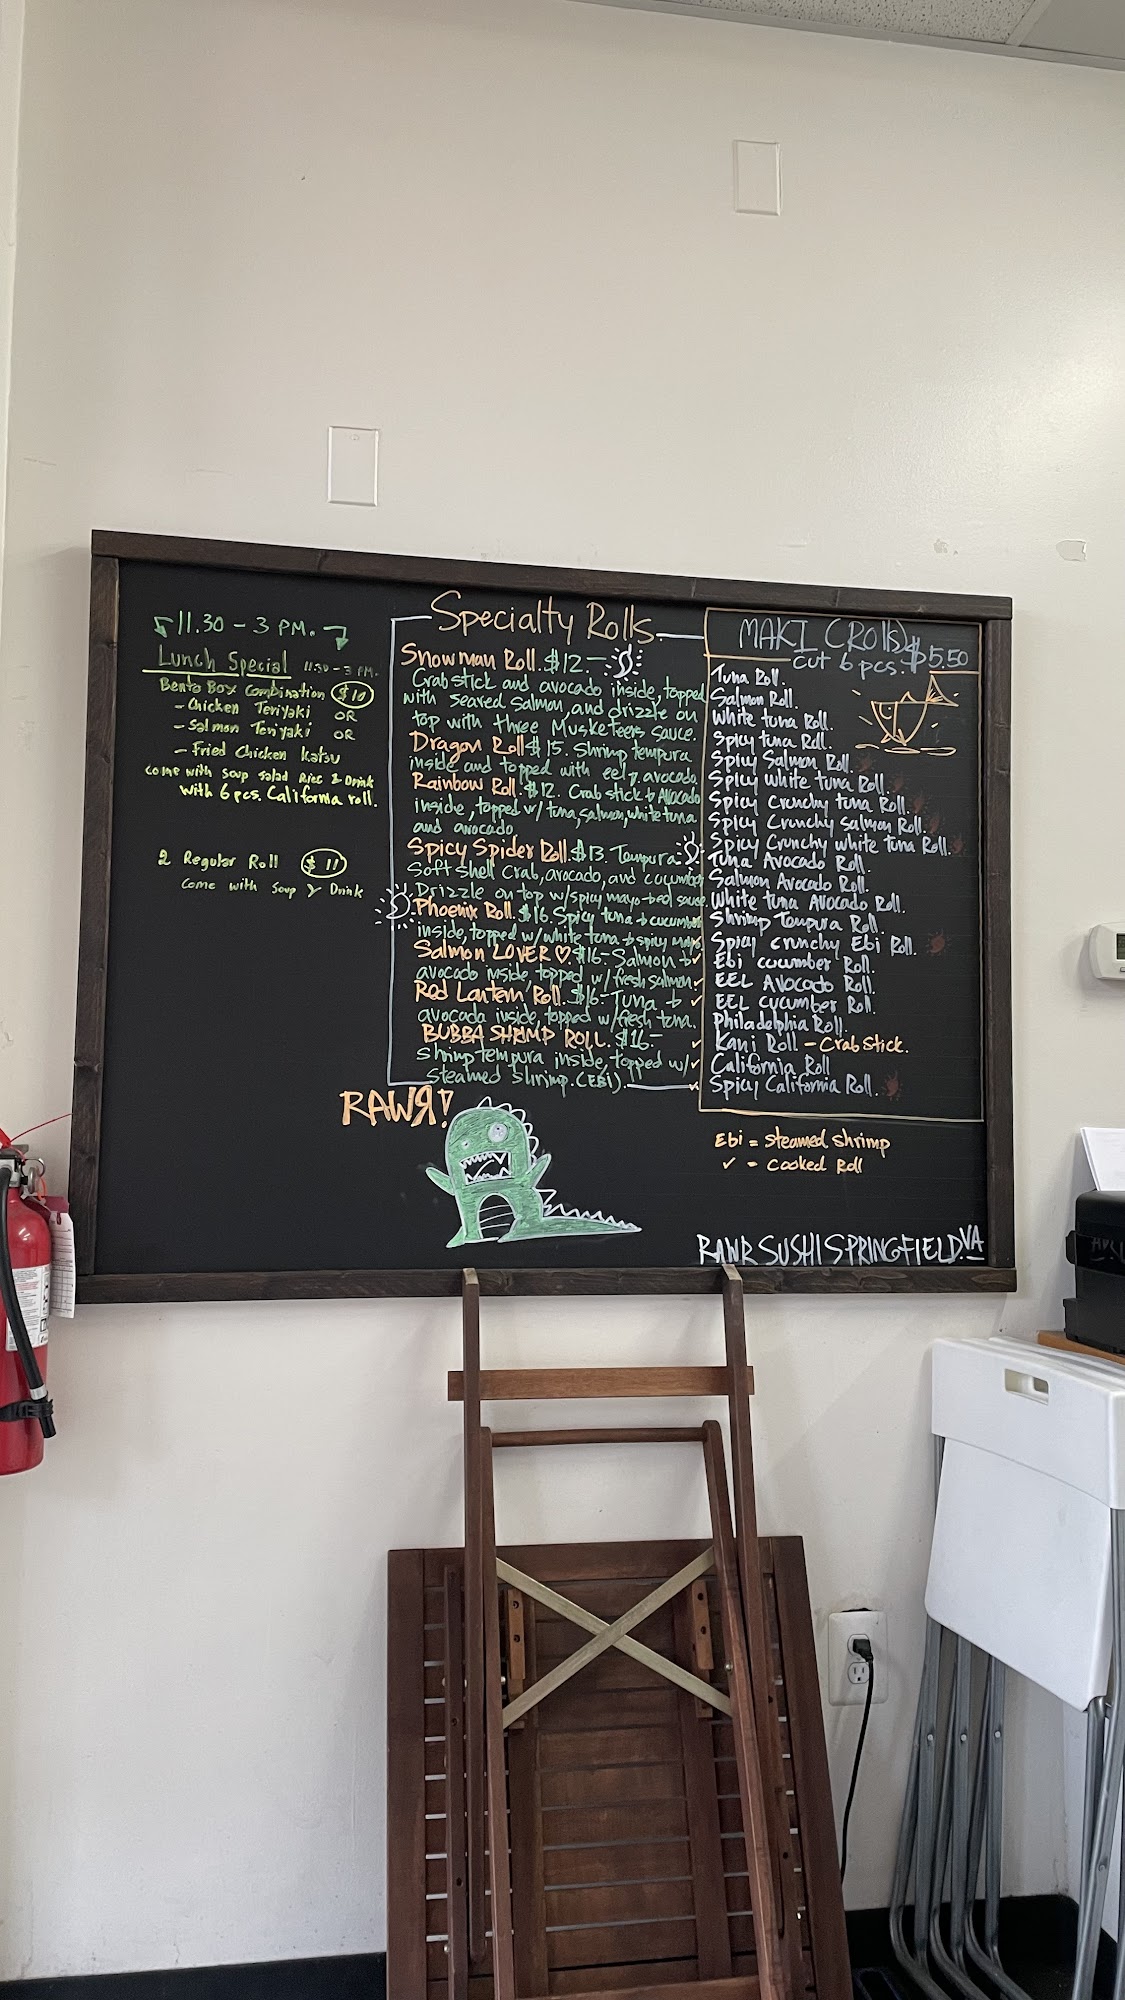 11.30 - 3 PM.
Lunch Special 11.30 - 3 PM.
Bento Box Combination $10
- Chicken Teriyaki OR
- Salmon Teriyaki OR
- Fried Chicken Katsu
come with Soup Salad Rice & Drink
with 6 pcs. California roll.
2 Regular Roll $11
come with Soup & Drink
Specialty Rolls
Snowman Roll. $12.-
Crabstick and avocado inside, topped
with seared salmon, and drizzle on
top with three Musketeers sauce.
Dragon Roll $15. Shrimp tempura
inside and topped with eel & avocado
Rainbow Roll. $12. Crab stick & Avocado
inside, topped w/ tuna, salmon, white tuna
and avocado
Spicy Spider Roll $13. Tempura
Soft shell Crab, avocado, and cucumber
Drizzle on top w/spicy mayo & eel sauce.
Phoenix Roll. $16. Spicy tuna & cucumber
inside, topped w/white tuna & spicy mayo
Salmon LOVER ♡ $16- Salmon &
avocado inside, topped w/ fresh salmon.
Red Lantern Roll. $16- Tuna &
avocado inside, topped w/fresh tuna.
BUBBA SHRIMP ROLL. $16-
Shrimp tempura inside, topped w/
steamed shrimp. (EBI).
MAKI (Rolls) $5.50
cut 6 pcs.
Tuna Roll.
Salmon Roll.
White tuna Roll.
Spicy tuna Roll.
Spicy Salmon Roll.
Spicy White tuna Roll.
Spicy Crunchy tuna Roll.
Spicy Crunchy Salmon Roll.
Spicy Crunchy white tuna Roll.
Tuna Avocado Roll.
Salmon Avocado Roll.
White tuna Avocado Roll.
Shrimp Tempura Roll.
✓ Spicy crunchy Ebi Roll.
✓ Ebi cucumber Roll.
✓ EEL Avocado Roll.
✓ EEL cucumber Roll.
Philadelphia Roll.
✓ Kani Roll - Crab stick.
✓ California Roll
✓ Spicy California Roll.
Ebi = steamed shrimp
✓ = Cooked Roll
RAWЯ!
RAWR SUSHI SPRINGFIELD.VA